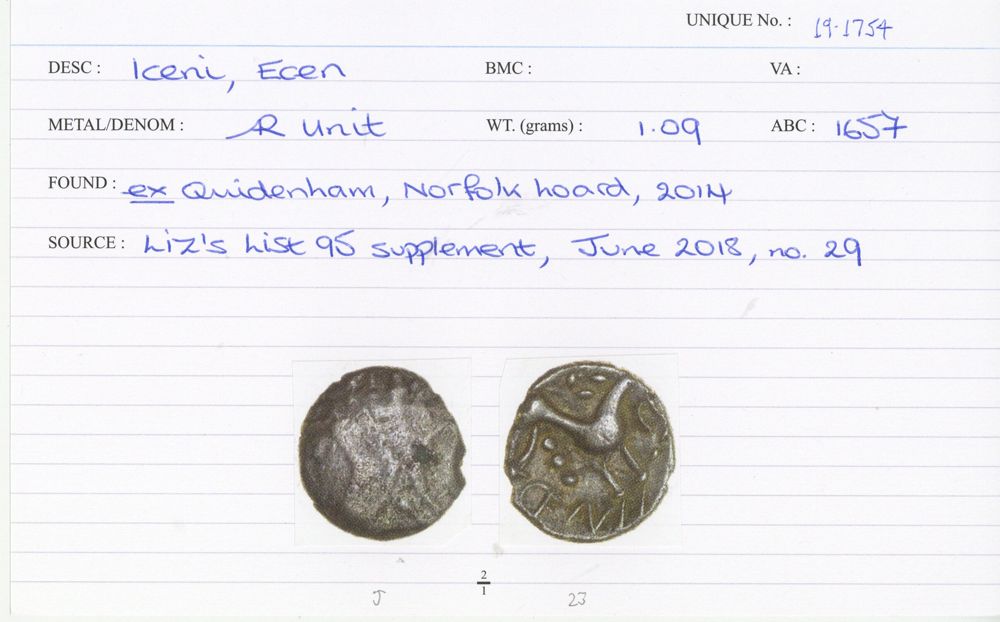 UNIQUE No. : 19.1754
DESC : Iceni, Ecen BMC : VA :
METAL/DENOM : AR Unit WT. (grams) : 1.09 ABC : 1657
FOUND : ex Quidenham, Norfolk hoard, 2014
SOURCE : Liz's List 95 supplement, June 2018, no. 29
2
1
J 23